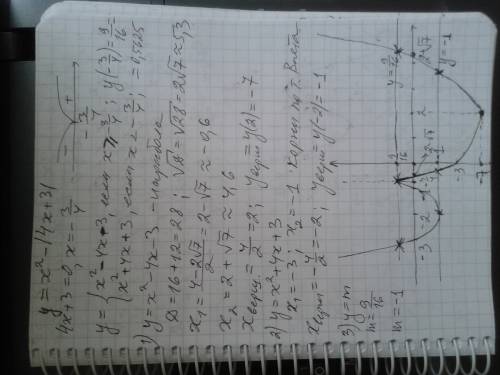 y = x² - |4x+3|
4x+3=0, x = -3/4
- -3/4 +
y = { x² - 4x - 3, если x ≥ -3/4; y(-3/4) = 9/16 =
x² + 4x + 3, если x < -3/4; = 0,5625
1) y = x² - 4x - 3 - парабола
D = 16 + 12 = 28; √D = √28 = 2√7 ≈ 5,3
x₁ = (4 - 2√7)/2 = 2 - √7 ≈ -0,6
x₂ = 2 + √7 ≈ 4,6
x верш. = 4/2 = 2; y верш = y(2) = -7
2) y = x² + 4x + 3
x₁ = -3; x₂ = -1 корни по т. Виета
x верш = -4/2 = -2; y верш = y(-2) = -1
3) y = m
m = 9/16
m = -1
y = 9/16
9/16
-3 -2 -1 -3/4 2-√7 2 2+√7
y = -1
-1
-3
-7